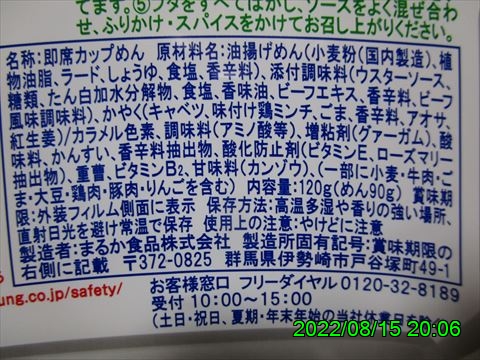 てます。⑤フタをすべてはがし、ソースをよく混ぜ合わ
せ、ふりかけ・スパイスをかけてお召し上がりください。
名称:即席カップめん 原材料名:油揚げめん(小麦粉(国内製造)、植
物油脂、ラード、しょうゆ、食塩、香辛料)、添付調味料(ウスターソース、
糖類、たん白加水分解物、食塩、香味油、ビーフエキス、香辛料、ビーフ
風味調味料)、かやく(キャベツ、味付け鶏ミンチ、ごま、香辛料、アオサ、
紅生姜)/カラメル色素、調味料(アミノ酸等)、増粘剤(グァーガム)、酸
味料、かんすい、香辛料抽出物、酸化防止剤(ビタミンE、ローズマリー
抽出物)、重曹、ビタミンB2、甘味料(カンゾウ)、(一部に小麦・牛肉・ご
ま・大豆・鶏肉・豚肉・りんごを含む) 内容量:120g(めん90g) 賞味期
限:外装フィルム側面に表示 保存方法:高温多湿や香りの強い場所、
直射日光を避け常温で保存 使用上の注意:やけどに注意
製造者:まるか食品株式会社 製造所固有記号:賞味期限の
右側に記載 〒372-0825 群馬県伊勢崎市戸谷塚町49-1
ung.co.jp/safety/
お客様窓口 フリーダイヤル 0120-32-8189
受付 10:00~15:00
(土・日・祝日、夏期・年末年始の当社休業日を除く)
2022/08/15 20:06